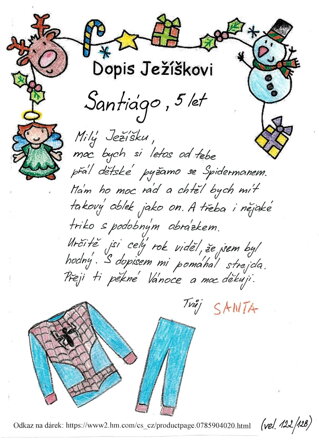 Dopis Ježíškovi
Santiágo, 5 let
Milý Ježíšku,
moc bych si letos od tebe
přál dětské pyžamo se Spidermanem.
Mám ho moc rád a chtěl bych mít
takový oblek jako on. A třeba i nějaké
triko s podobným obrázkem.
Určitě jsi celý rok viděl, že jsem byl
hodný. S dopisem mi pomáhal strejda.
Přeji ti pěkné Vánoce a moc děkuji.
Tvůj SANTA
Odkaz na dárek: https://www2.hm.com/cs_cz/productpage.0785904020.html (vel. 122/128)